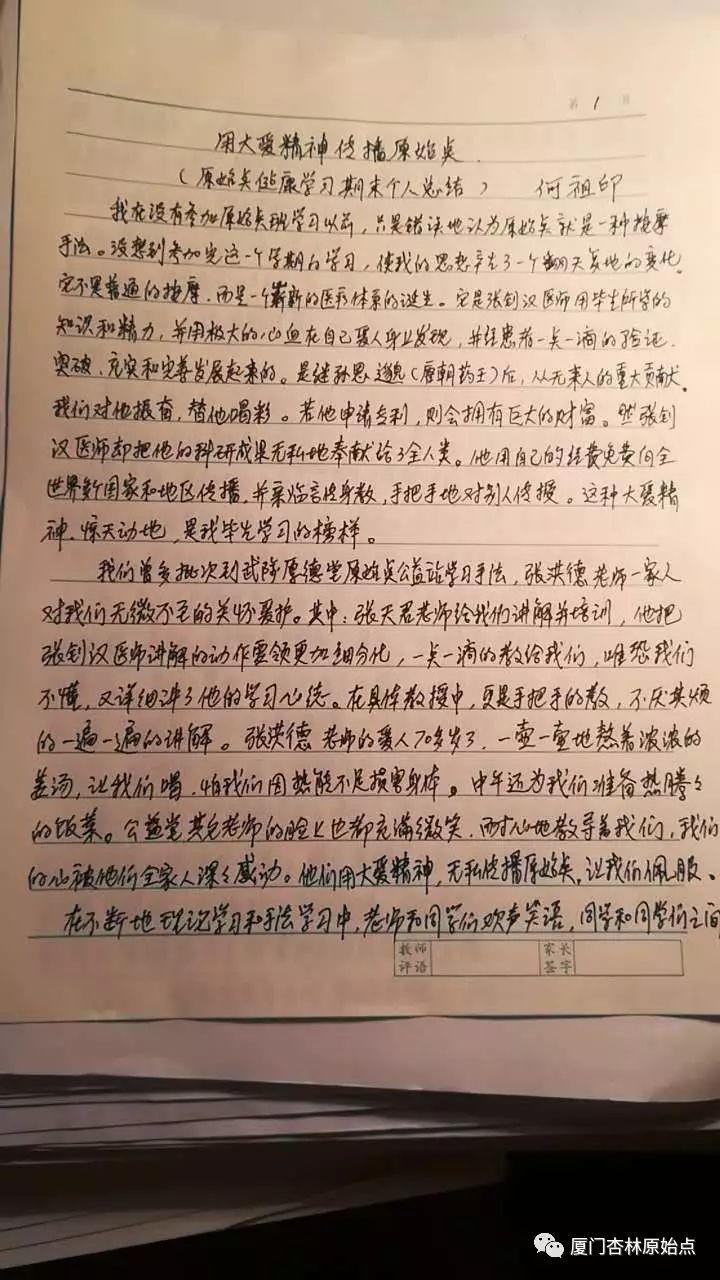 第 1 页
用大爱精神传播原始点
（原始点健康学习期末个人总结） 何祖印
我在没有参加原始点班学习以前，只是错误地认为原始点就是一种按摩
手法。没想到参加完这一个学期的学习，使我的思想产生了一个翻天复地的变化。
它不是普通的按摩，而是一个崭新的医疗体系的诞生。它是张钊汉医师用毕生所学的
知识和精力，并用极大的心血在自己爱人身上发现，并经患者一点一滴的验证、
突破、充实和完善发展起来的。是继孙思邈（唐朝药王）后，从无来人的重大贡献。
我们对他振奋，替他喝彩。若他申请专利，则会拥有巨大的财富。然张钊
汉医师却把他的科研成果无私地奉献给了全人类。他用自己的经费免费向全
世界新国家和地区传播，并亲临言传身教，手把手地对别人传授。这种大爱精
神，惊天动地，是我毕生学习的榜样。
我们曾多批次到武陟厚德堂原始点公益站学习手法，张洪德老师一家人
对我们无微不至的关怀爱护。其中：张天君老师给我们讲解并培训，他把
张钊汉医师讲解的动作要领更加细分化，一点一滴的教给我们，唯恐我们
不懂，又详细讲了他的学习心德。在具体教授中，更是手把手的教，不厌其烦
的一遍一遍的讲解。张洪德老师的爱人70多岁了，一壶一壶地熬着滚滚的
姜汤，让我们喝，怕我们因热能不足损害身体。中午还为我们准备热腾々
的饭菜。公益堂其它老师的脸上也都充满微笑，耐心地教导着我们，我们
的心被他们全家人深々感动。他们用大爱精神，无私传播原始点，让我们佩服。
在不断地理论学习和手法学习中，老师和同学们欢声笑语，同学和同学们之间
教师
评语
家长
签字
厦门杏林原始点